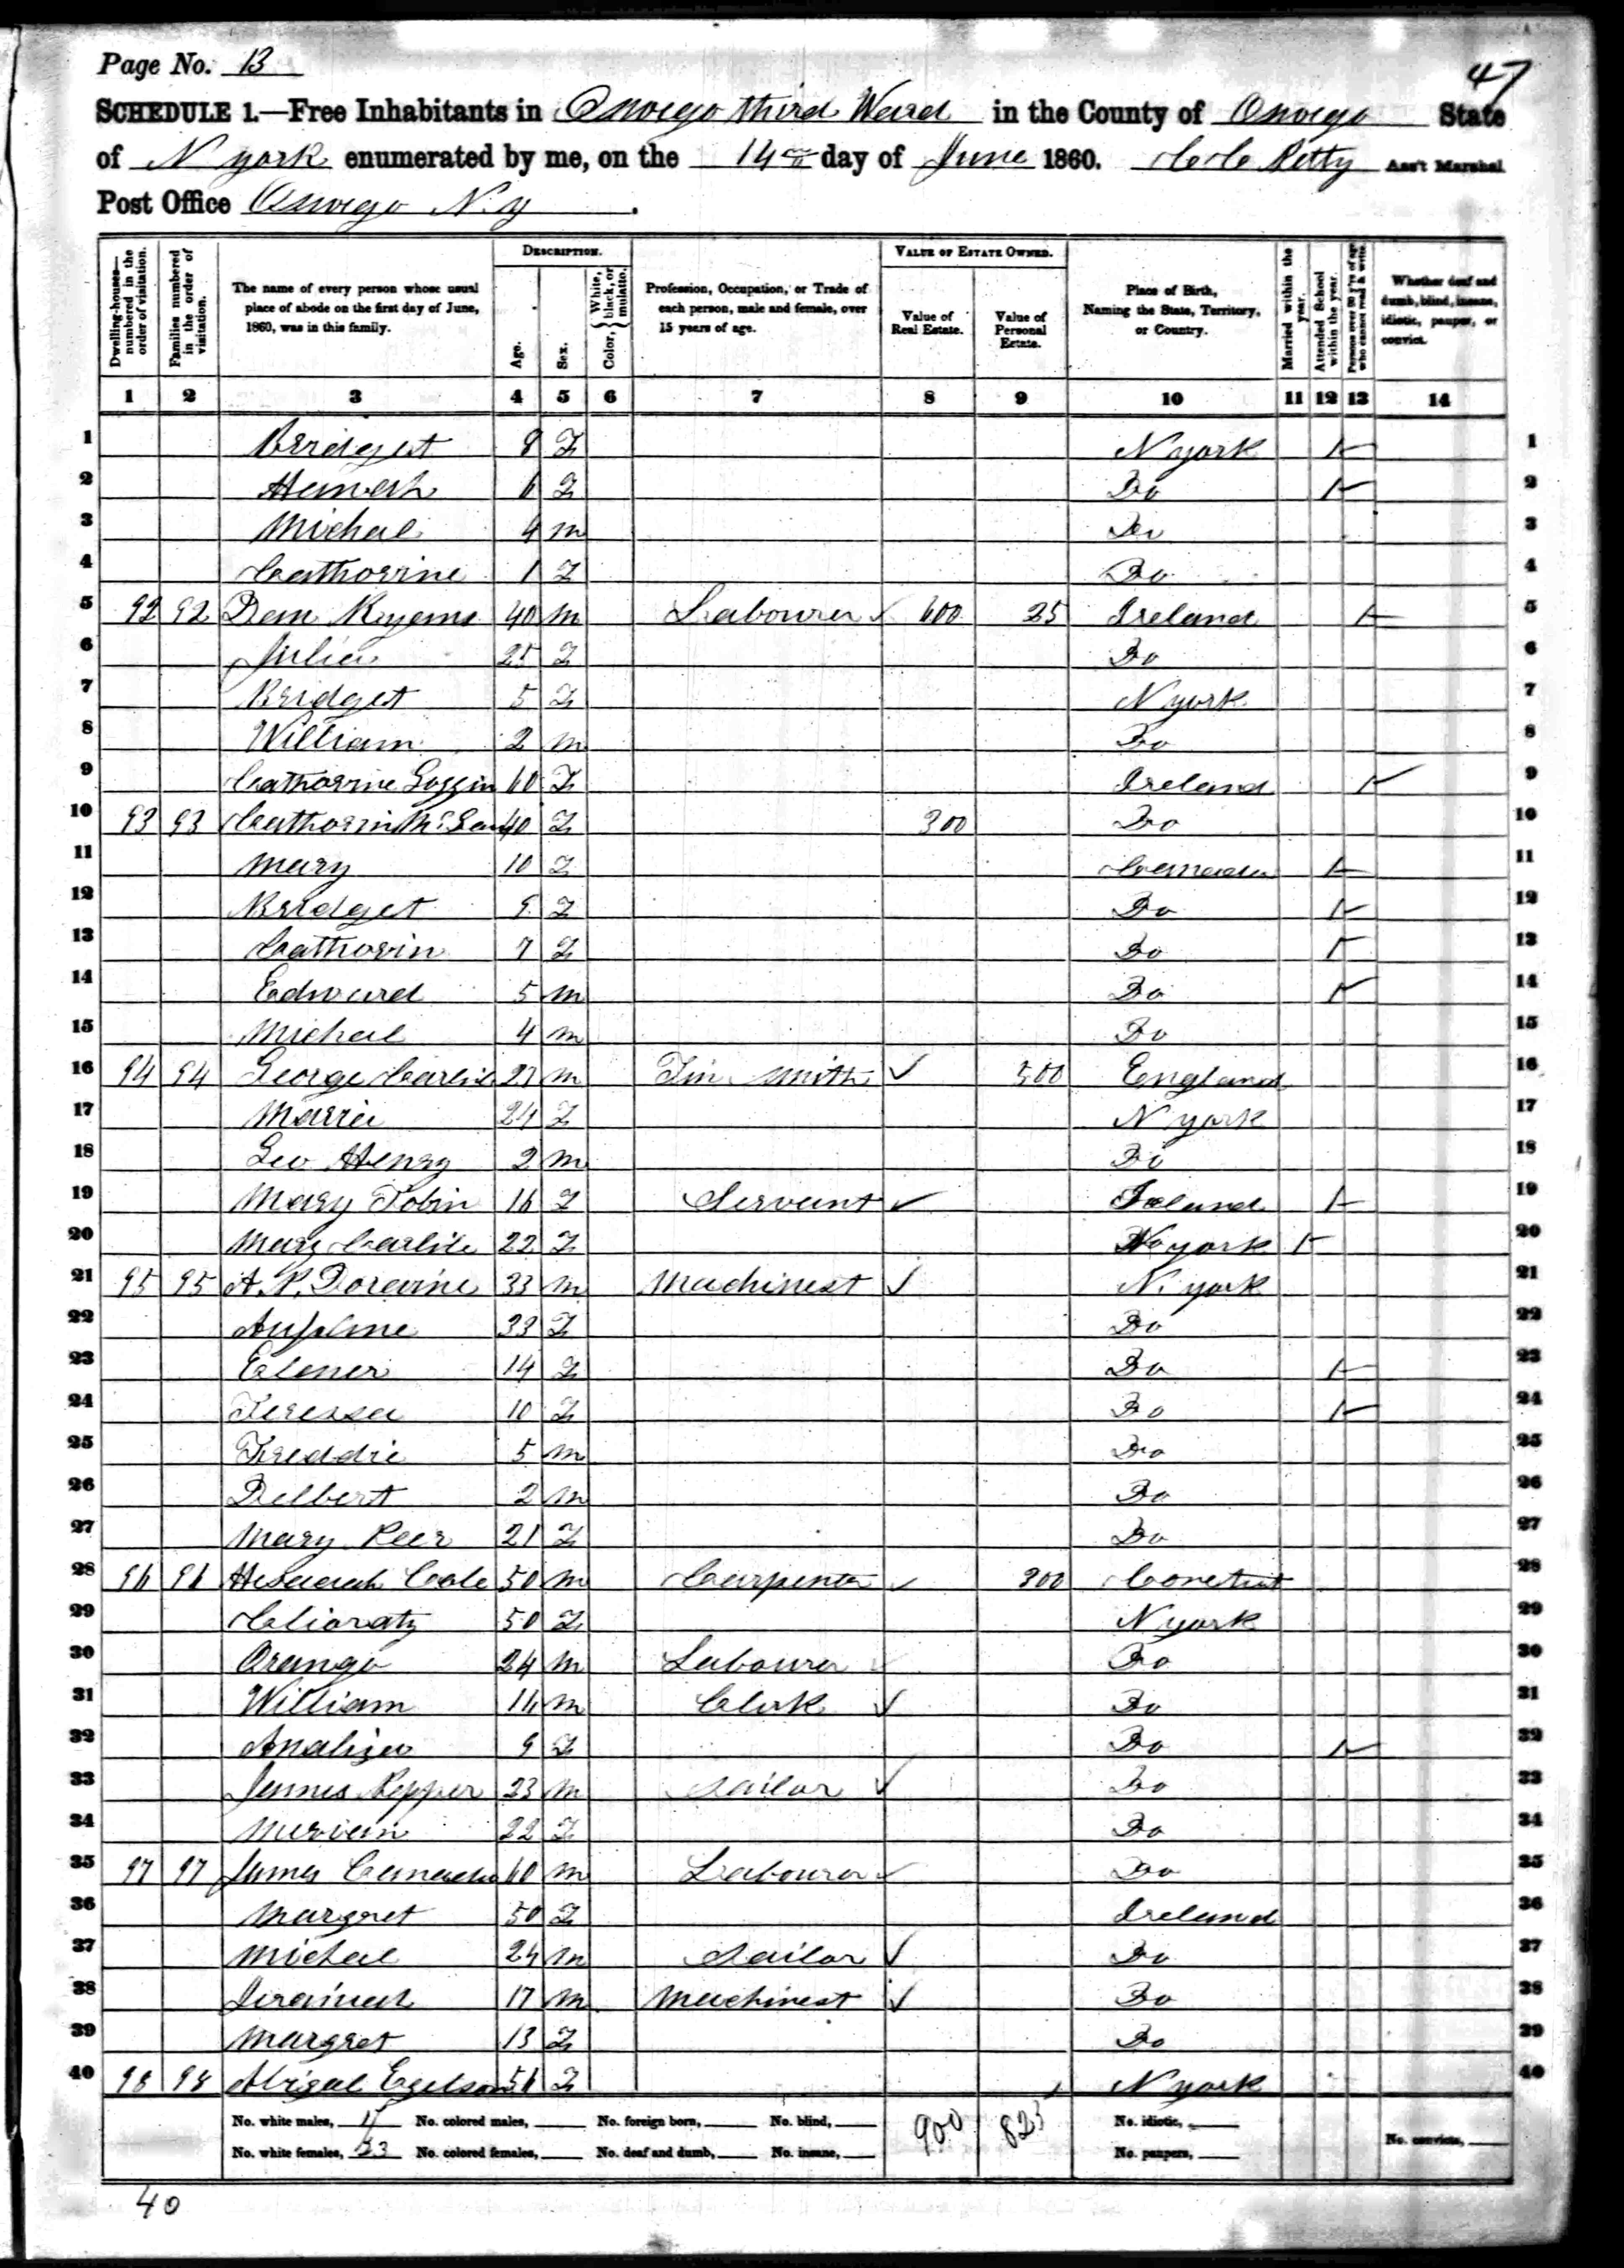 Page No. 13
47
SCHEDULE 1.—Free Inhabitants in Oswego third Ward in the County of Oswego State
of N york enumerated by me, on the 14th day of June 1860. Ass't Marshal
Post Office Oswego N.y.
Dwelling-houses—numbered in the order of visitation.
Families numbered in the order of visitation.
The name of every person whose usual place of abode on the first day of June, 1860, was in this family.
DESCRIPTION.
Age.
Sex.
Color, { White, black, or mulatto.
Profession, Occupation, or Trade of each person, male and female, over 15 years of age.
VALUE OF ESTATE OWNED.
Value of Real Estate.
Value of Personal Estate.
Place of Birth, Naming the State, Territory, or Country.
Married within the year.
Attended School within the year.
Persons over 20 y'rs of age who cannot read & write
Whether deaf and dumb, blind, insane, idiotic, pauper, or convict.
1 2 3 4 5 6 7 8 9 10 11 12 13 14
1 Bridget 8 F N york 1
2 6 F Do 2
3 Michal 4 m Do 3
4 Cathorine 1 F Do 4
5 92 92 40 m Labourer 600 25 Ireland 5
6 Julia 25 F Do 6
7 Bridget 5 F N york 7
8 William 2 m Do 8
9 Cathorine 60 F Ireland 9
10 93 93 Cathorin 40 F 300 Do 10
11 Mary 10 F Canada 11
12 Bridget 9 F Do 12
13 Cathorin 7 F Do 13
14 Edward 5 m Do 14
15 Michael 4 m Do 15
16 94 94 George Carlile 27 m Tin smith 500 England 16
17 Marria 24 F N york 17
18 Geo Henry 2 m Do 18
19 Mary Tobin 16 F Servant Ireland 19
20 Mary Carlile 22 F N york 20
21 95 95 A. P. 33 m Machinest N. york 21
22 33 F Do 22
23 Elener 14 F Do 23
24 Teressa 10 F Do 24
25 Freddie 5 m Do 25
26 Delbert 2 m Do 26
27 Mary Peer 21 F Do 27
28 96 96 Cole 50 m Carpenter 300 28
29 50 F N york 29
30 Orango 24 m Labourer Do 30
31 William 16 m Clerk Do 31
32 Analiza 9 F Do 32
33 James Pepper 23 m Sailor Do 33
34 22 F Do 34
35 97 97 James 60 m Labourer Do 35
36 Margret 50 F Ireland 36
37 Micheal 24 m Sailor Do 37
38 17 m Machinest Do 38
39 Margret 13 F Do 39
40 98 98 Abigal 56 F N york 40
No. white males, 17 No. colored males, No. foreign born, No. blind, 900 825 No. idiotic,
No. white females, 23 No. colored females, No. deaf and dumb, No. insane, No. paupers, No. convicts,
40